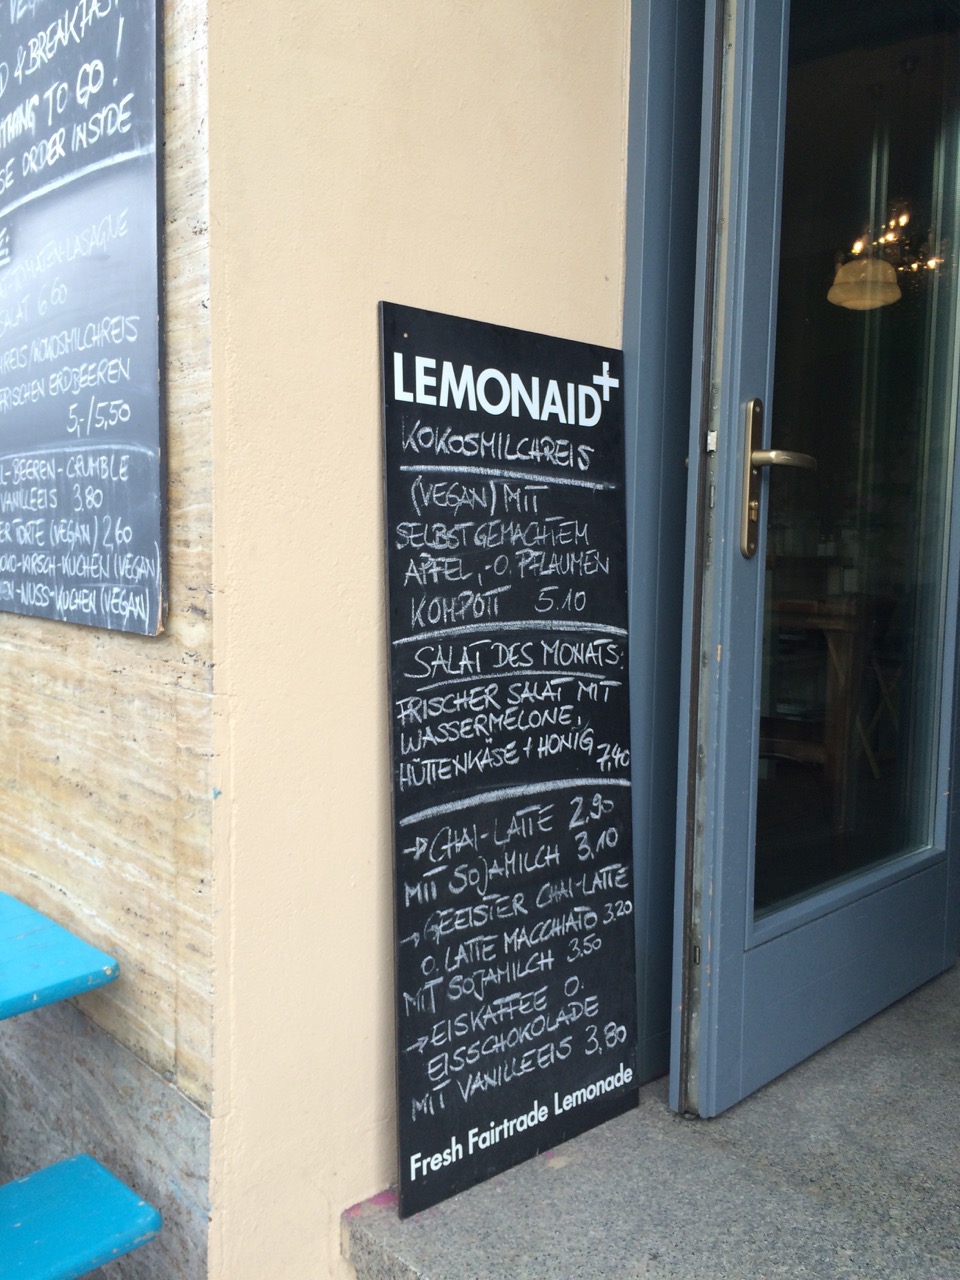 & BREAKFAST
TO GO!
ORDER INSIDE
TOMATEN-LASAGNE
SALAT 6.60
REIS/KOKOSMILCHREIS
FRISCHEN ERDBEEREN
5,-/5,50
L-BEEREN-CRUMBLE
VANILLEEIS 3.80
ER TORTE (VEGAN) 2,60
OKO-KIRSCH-KUCHEN (VEGAN)
EN-NUSS-KUCHEN (VEGAN)
LEMONAID+
KOKOSMILCHREIS
(VEGAN) MIT
SELBSTGEMACHTEM
APFEL,-O. PFLAUMEN
KOMPOTT 5.10
SALAT DES MONATS:
FRISCHER SALAT MIT
WASSERMELONE,
HÜTTENKÄSE + HONIG 7,40
→ CHAI-LATTE 2,90
MIT SOJAMILCH 3,10
→ GEEISTER CHAI-LATTE
O. LATTE MACCHIATO 3.20
MIT SOJAMILCH 3.50
→ EISKAFFEE O.
EISSCHOKOLADE
MIT VANILLEEIS 3,80
Fresh Fairtrade Lemonade